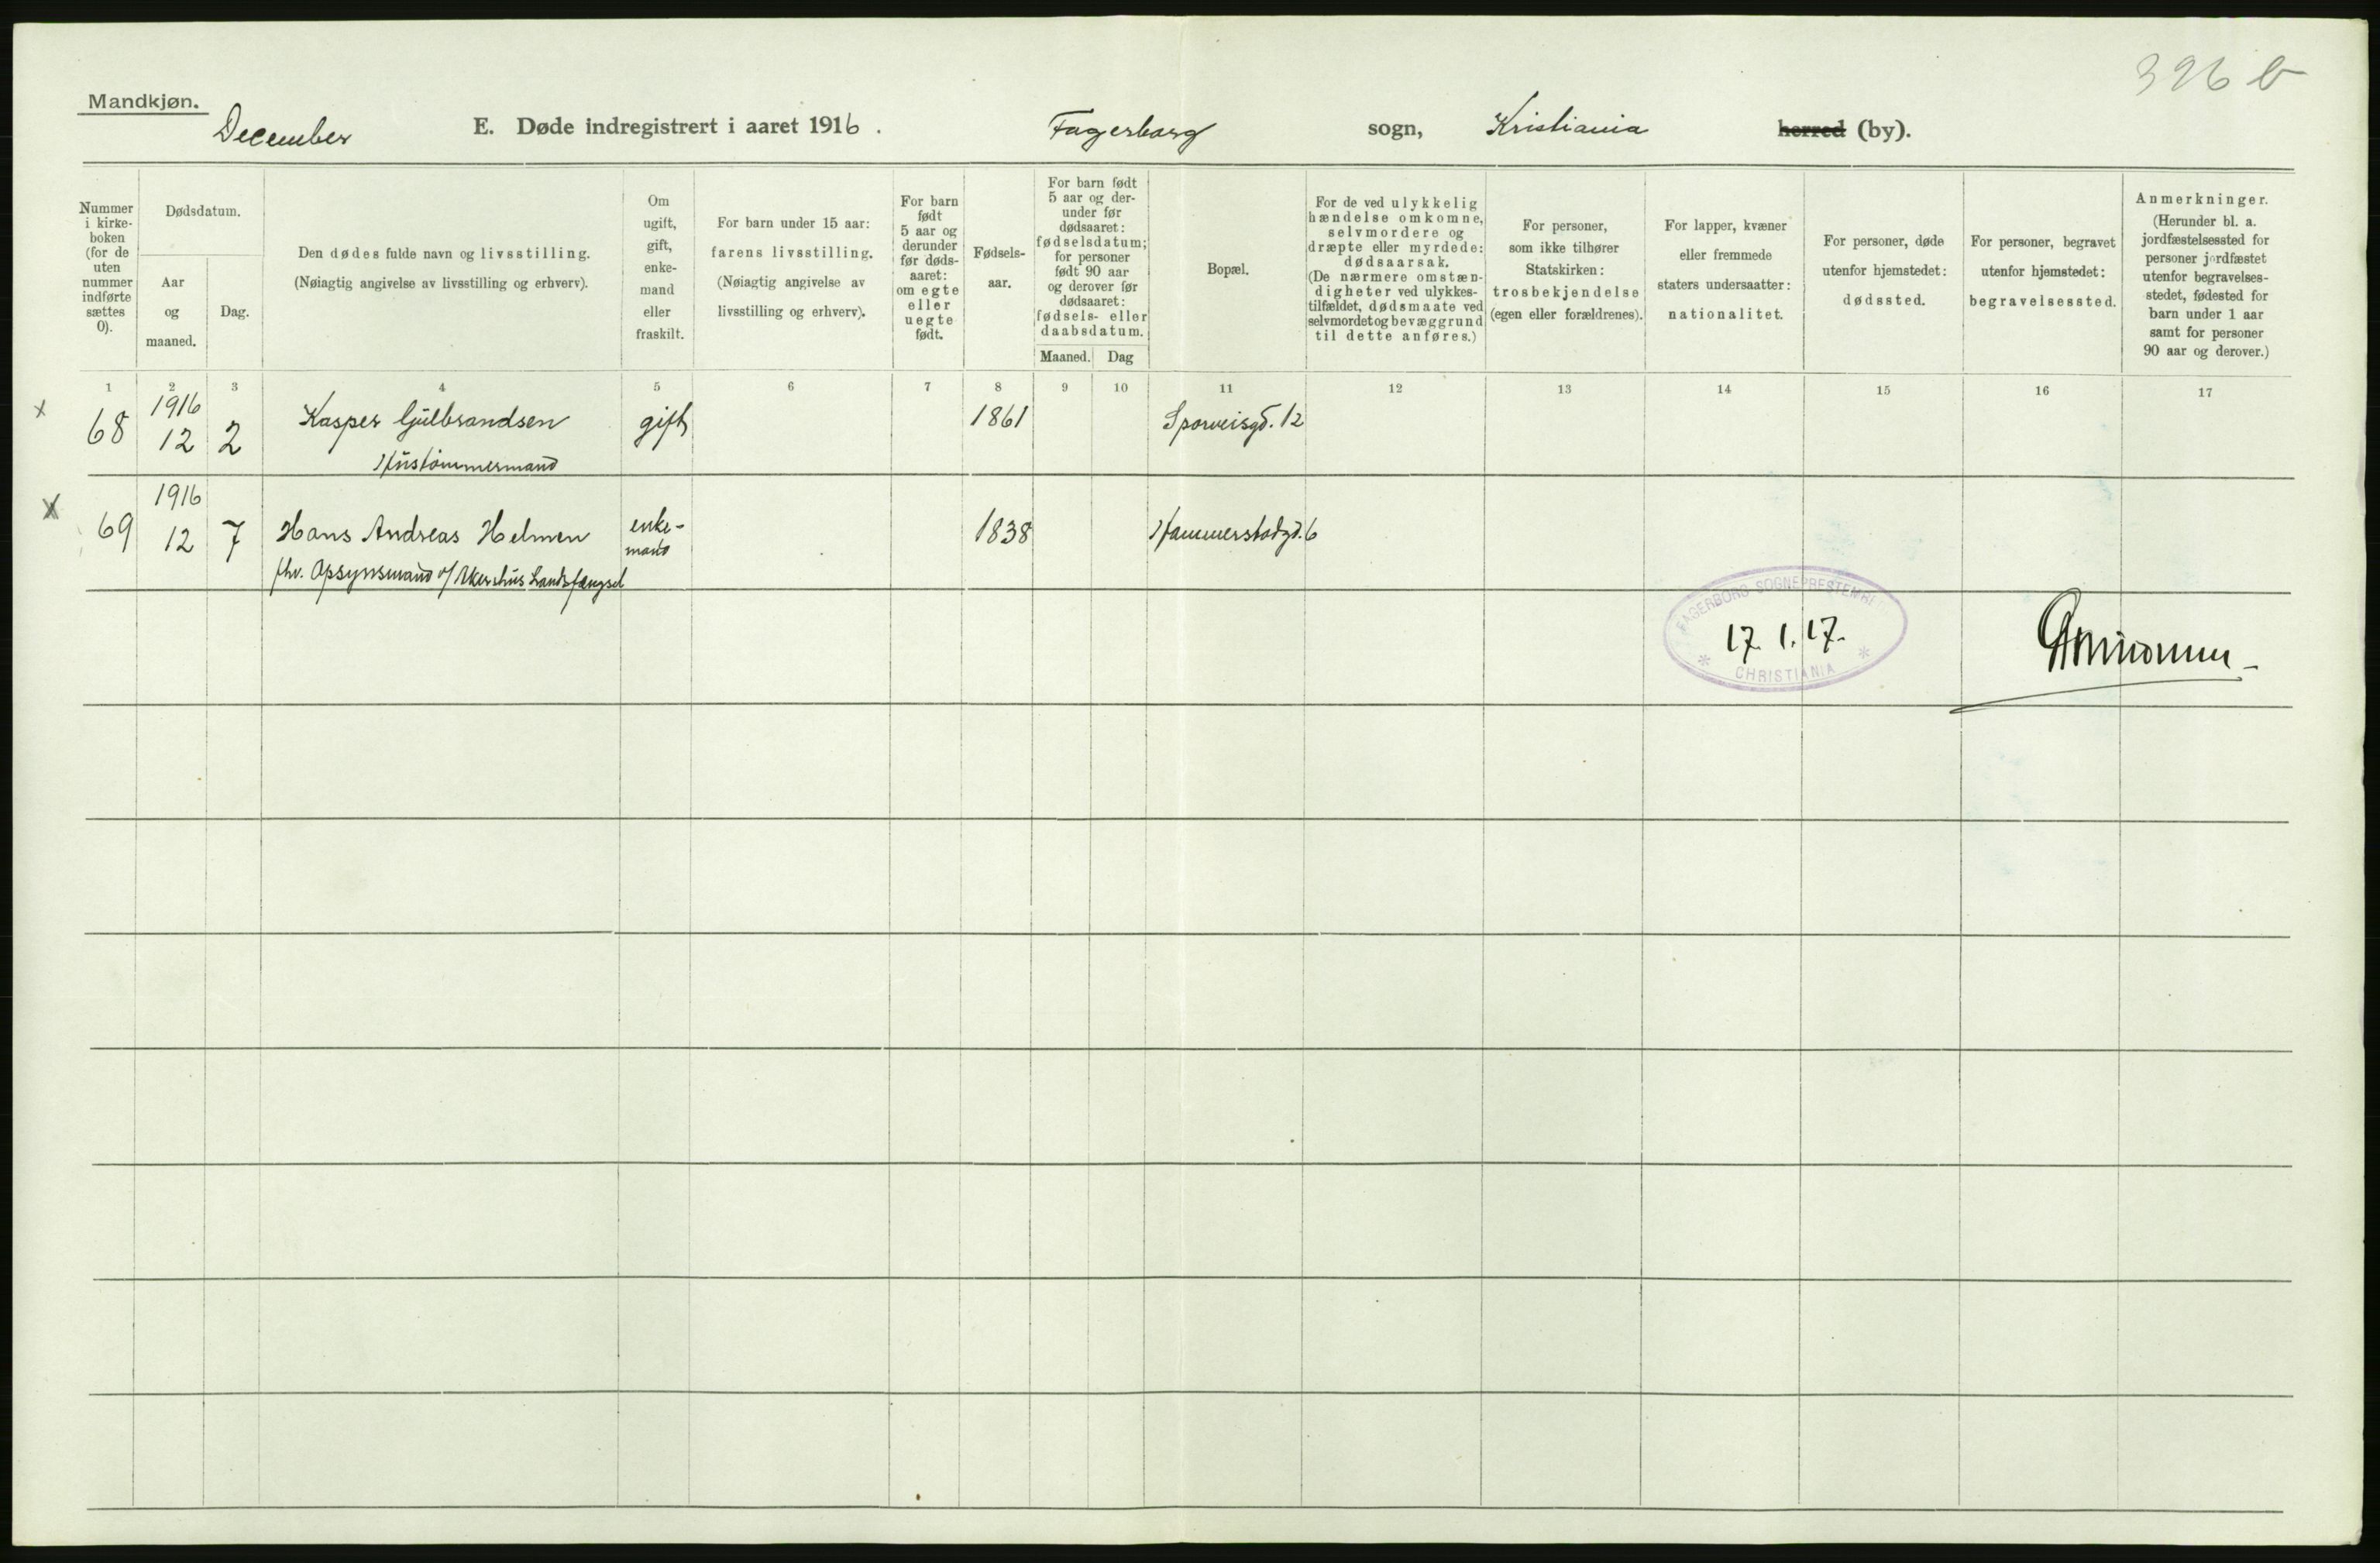 396 b
Mandkjøn.
December E. Døde indregistrert i aaret 1916. Fagerborg sogn, Kristiania herred (by).
Nummer i kirke-boken (for de uten nummer indførte sættes 0).
Dødsdatum.
Aar og maaned.
Dag.
Den dødes fulde navn og livsstilling.
(Nøiagtig angivelse av livsstilling og erhverv).
Om ugift, gift, enke-mand eller fraskilt.
For barn under 15 aar:
farens livsstilling.
(Nøiagtig angivelse av
livsstilling og erhverv).
For barn født 5 aar og derunder før døds-aaret: om egte eller uegte født.
Fødsels-aar.
For barn født 5 aar og der-under før dødsaaret: fødselsdatum; for personer født 90 aar og derover før dødsaaret: fødsels- eller daabsdatum.
Maaned. Dag
Bopæl.
For de ved ulykkelig
hændelse omkomne,
selvmordere og
dræpte eller myrdede:
dødsaarsak.
(De nærmere omstæn-
digheter ved ulykkes-
tilfældet, dødsmaate ved
selvmordet og bevæggrund
til dette anføres.)
For personer,
som ikke tilhører
Statskirken:
trosbekjendelse
(egen eller forældrenes).
For lapper, kvæner
eller fremmede
staters undersaatter:
nationalitet.
For personer, døde
utenfor hjemstedet:
dødssted.
For personer, begravet
utenfor hjemstedet:
begravelsessted.
Anmerkninger.
(Herunder bl. a.
jordfæstelsessted for
personer jordfæstet
utenfor begravelses-
stedet, fødested for
barn under 1 aar
samt for personer
90 aar og derover.)
1 2 3 4 5 6 7 8 9 10 11 12 13 14 15 16 17
x 68 1916 12 2 Kasper Gulbrandsen gift 1861 Sporveisgd. 12
Hustømmermand
x 69 1916 12 7 Hans Andreas Helmen enke-mand 1838 Hammerstadgd. 6
fhv. Opsynsmand v/ Akershus Landsfængsel
FAGERBORG SOGNEPRESTEMB.
17. 1. 17.
* CHRISTIANIA *